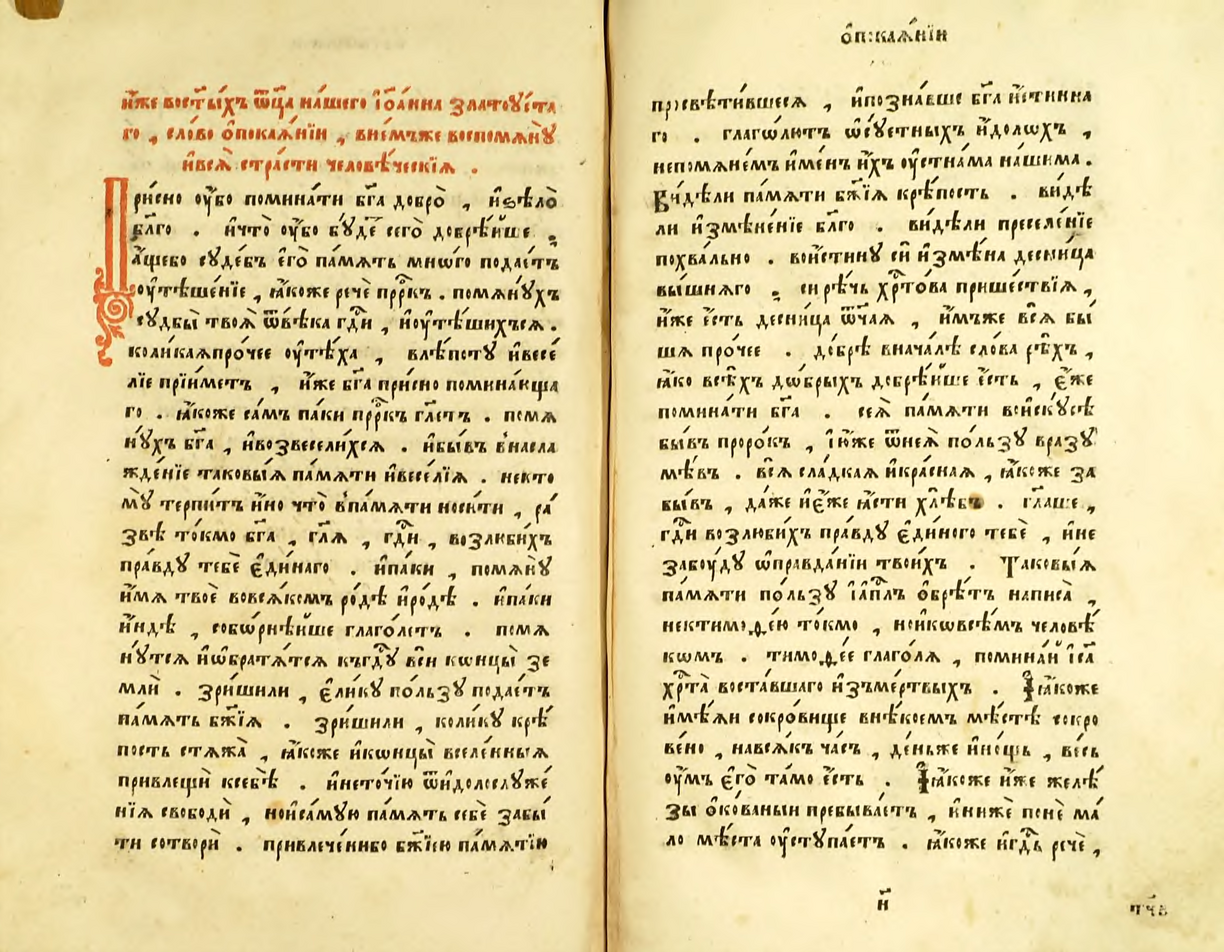 и҆́же во ст҃ы́хъ ѿц҃а на́шего і҆ѡа́нна златоꙋ́ста
го , сло́во ѡ҆ покаѧ́нїи , в не́мже воспомѧнꙋ̀
и҆ всѧ̀ стра́сти человѣ́ческїѧ .
При́сно оу҆́бо помина́ти бг҃а добро̀ , и҆ ѕѣло̀
бл҃го . и҆ что̀ оу҆́бо бꙋ́де сего̀ добрѣ́йше ,
а҆́ще бо сꙋде́бъ є҆го̀ па́мѧть мно́го подае́тъ
оу҆тѣше́нїе , ꙗ҆́коже речѐ прⷪ҇ркъ . помѧнꙋ́хъ
сꙋдбы̀ твоѧ̀ ѿ вѣ́ка гдⷭ҇и , и҆ оу҆тѣ́шихъсѧ .
коли́каѧ про́чее оу҆тѣ́ха , в лѣ́потꙋ и҆ весе́
лїе прїи́метъ , и҆́же бг҃а при́сно помина́юща
го . ꙗ҆́коже са́мъ па́ки прⷪ҇ркъ гл҃етъ . помѧ
нꙋ́хъ бг҃а , и҆ возвесели́хсѧ . и҆ бы́въ в насла
жде́нїе таковы́ѧ па́мѧти и҆ весе́лїѧ . не кто
мꙋ̀ терпи́тъ и҆́но что̀ в па́мѧти носи́ти , ра́
звѣ то́кмо бг҃а , гл҃ѧ , гдⷭ҇и , возлюби́хъ
пра́вдꙋ тебѐ є҆ди́наго . и҆ па́ки , помѧнꙋ̀
и҆́мѧ твоѐ во всѧ́комъ ро́дѣ и҆ ро́дѣ . и҆ па́ки
и҆́ндѣ , собо́рнѣйше глаго́летъ . помѧ
нꙋ́тсѧ и҆ ѡ҆братѧ́тсѧ къ гдⷭ҇ꙋ вси̑ концы̀ зе
мли̑ . зри́ши ли , є҆ли́кꙋ по́льзꙋ подае́тъ
па́мѧть бж҃їѧ . зри́ши ли , коли́кꙋ крѣ́
пость стѧжа̀ , ꙗ҆́коже и҆ концы̀ вселе́нныѧ
привлещѝ к себѣ̀ . и҆ не то́чїю ѿ и҆долослꙋже́
нїѧ свободѝ , но и҆ са́мꙋю па́мѧть себѐ забы́
ти сотворѝ . привлече́ни бо бж҃їею па́мѧтїю
ѡ҆ п:каѧ́нїи
просвѣти́вшесѧ , и҆ позна́вше бг҃а и҆́стинна
го . глаго́лютъ ѡ҆ сꙋ́етныхъ и҆́долѡхъ ,
не помѧне́мъ и҆ме́нъ и҆́хъ оу҆стна́ма на́шима .
Ви́дѣли па́мѧти бж҃їѧ крѣ́пость . ви́дѣ
ли и҆змѣне́нїе бл҃го . ви́дѣли преселе́нїе
похва́льно . вои́стинꙋ сѝ и҆змѣ́на десни́ца
вы́шнѧго , си рѣ́чь хрⷭ҇то́ва прише́ствїѧ ,
и҆́же є҆́сть десни́ца ѻ҆́ч҃аѧ , и҆́мъже всѧ̀ бы́
шѧ про́чее . до́брѣ в нача́лѣ сло́ва рѣ́хъ ,
ꙗ҆́ко всѣ́хъ до́брыхъ добрѣ́йше є҆́сть , є҆́же
помина́ти бг҃а . сеѧ̀ па́мѧти во и҆скꙋ́сѣ
бы́въ проро́къ , і҆ и҆́же ѿ неѧ̀ по́льзꙋ вразꙋ
мѣ́въ . всѧ̀ сла́дкаѧ и҆ кра́снаѧ , ꙗ҆́коже за
бы́въ , да́же и҆ є҆́же ꙗ҆́сти хлѣ́бъ . гл҃аше ,
гдⷭ҇и возлюби́хъ пра́вдꙋ є҆ди́ного тебѐ , и҆ не
забоу́дꙋ ѡ҆правда́нїи твои́хъ . Таковы́ѧ
па́мѧти по́льзꙋ і҆ а҆пⷭ҇лъ ѡ҆брѣ́тъ написа̀ ,
не к тимоѳе́ю то́кмо , но и҆ ко всѣ́мъ человѣ́
комъ . тимоѳе́е глаго́лѧ , помина́й і҆с҃а
хрⷭ҇та̀ воста́вшаго и҆з̾ ме́ртвыхъ . І҆ ꙗ҆́коже
и҆мѣ́ѧи сокро́вище в нѣ́коемъ мѣ́стѣ сокро
ве́но , на всѧ́къ ча́съ , де́нь же и҆ но́щь , ве́сь
оу҆́мъ є҆го̀ та́мо є҆́сть . І҆ ꙗ҆́коже и҆́же желѣ́
зы ѡ҆ко́ваныи пребыва́етъ , и҆ нижѐ понѐ ма́
ло мѣ́ста оу҆стꙋпа́етъ . ꙗ҆́коже и҆ гдⷭ҇ь речѐ ,
и҃
тч҃в